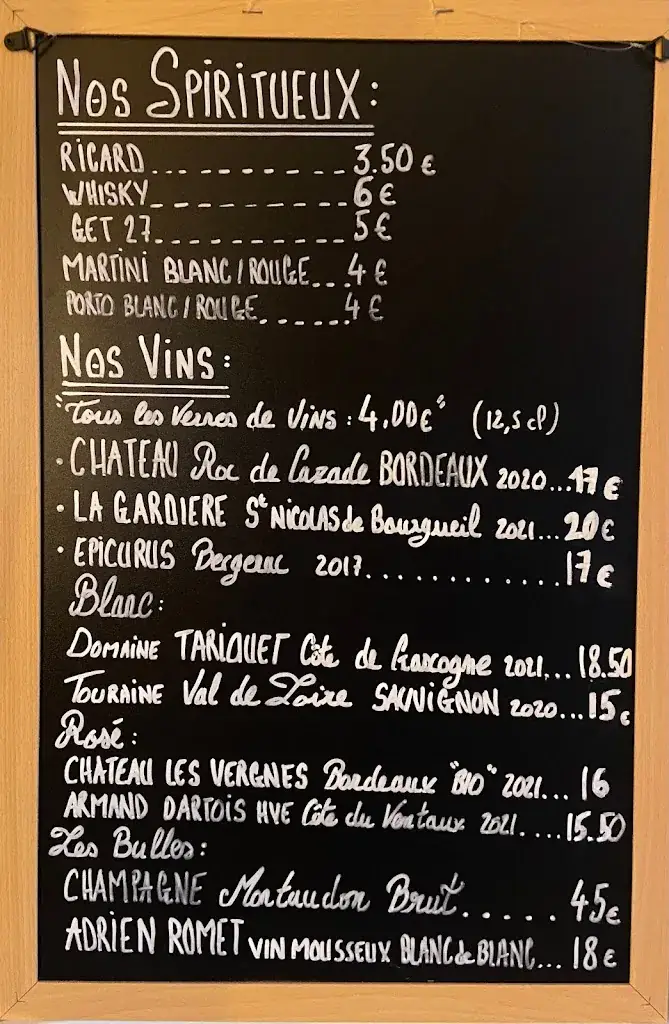 Nos SPIRITUEUX:
RICARD............3.50 €
WHISKY............6 €
GET 27............5 €
MARTINI BLANC/ROUGE...4 €
PORTO BLANC/ROUGE......4 €
Nos VINS:
"Tous les Verres de VINS : 4,00€" (12,5 cl)
• CHATEAU Roc de Cazade BORDEAUX 2020...17 €
• LA GARDIERE St NICOLAS de Bourgueil 2021...20€
• EPICURUS Bergerac 2017.............17€
Blanc:
DOMAINE TARIQUET Côte de Gascogne 2021...18.50
TOURAINE Val de Loire SAUVIGNON 2020...15€
Rosé:
CHATEAU LES VERGNES Bordeaux "BIO" 2021... 16
ARMAND DARTOIS HVE Côte du Ventaux 2021....15.50
Les Bulles:
CHAMPAGNE Montaudon Brut..... 45€
ADRIEN ROMET VIN MOUSSEUX BLANC de BLANC... 18€